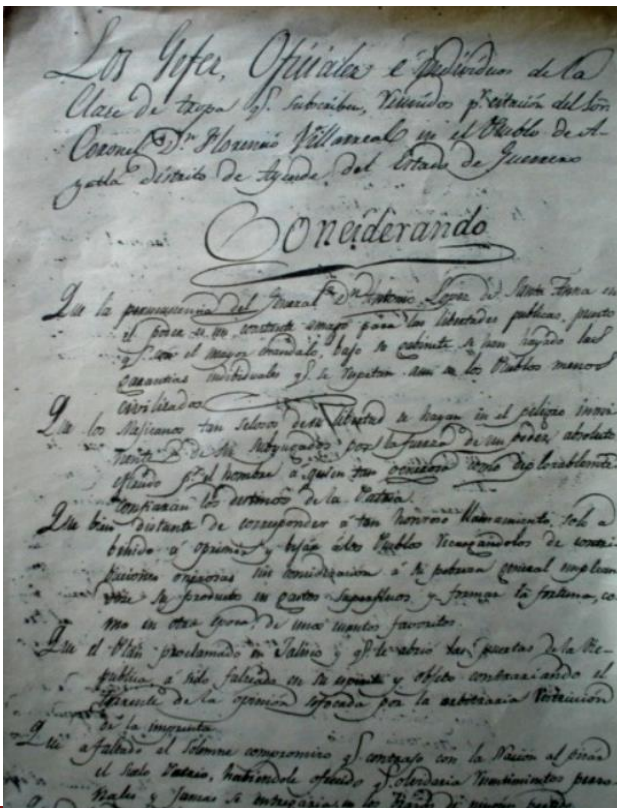 Los Gefes, Oficiales é individuos de la
Clase de tropa q.e subscriben, reunidos p.r citación del Sor.
Coronel D.n Florencio Villarreal en el Pueblo de A-
yutla distrito de Ayende, del Estado de Guerrero
Considerando
Que la permanencia del General D.n Antonio Lopez de Santa Anna en
el poder es un constante amago para las libertades publicas, puesto
q.e con el mayor escándalo, bajo su gabinete se han hayado las
garantias individuales q.e se respetan aun en los Pueblos menos
civilizados
Que los Mejicanos tan selosos de su libertad se hayan en el peligro
de ser subyugados por la fuerza de un poder absoluto
p.r el hombre á quien tan deplorablemente
confiaran los destinos de la Patria.
Que bien distante de corresponder á tan honroso llamamiento, solo a
benido á oprimir y bejar á los Pueblos recargándolos de contri-
buciones onerosas sin consideración á su pobreza general emplean-
dose su producto en gastos superfluos y formar la fortuna, co-
mo en otra epoca, de unos cuantos favoritos.
Que el Plan proclamado en Jalisco y q.e le abrio las puertas de la Re-
publica, á sido falseado en su espiritu y objeto contrariando el
torrente de la opinión sofocada por la arbitraria restricción
de la imprenta.
Que a faltado al solemne compromiso q.e contrajo con la Nación al pisar
el suelo Patrio, habiendole ofrecido q.e olvidaria resentimientos perso-
nales y jamas se entregaria en los